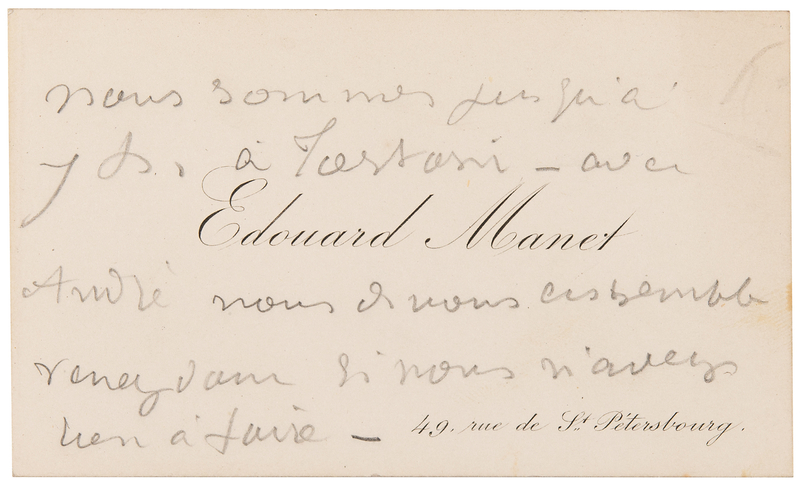 nous sommes jusqu'à
7 h. à Tortoni – avec
Edouard Manet
André nous dinons ensemble
venez donc si vous n'avez
rien à faire –
49. rue de St. Pétersbourg.